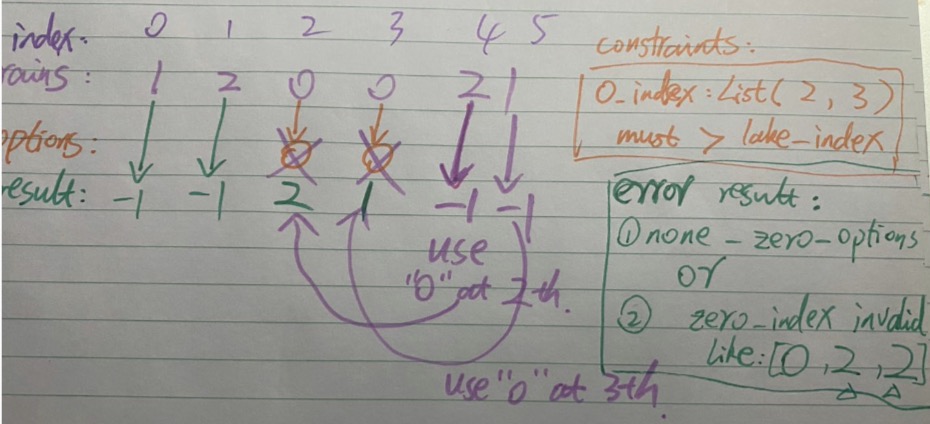 index: 0 1 2 3 4 5
rains: 1 2 0 0 2 1
options: 0 0
result: -1 -1 2 1 -1 -1
use
"0" at 2-th.
use "0" at 3th.
constraints:
0_index: List(2, 3)
must > lake_index
error result:
① none_zero_options
or
② zero_index invalid
like: [0, 2, 2]